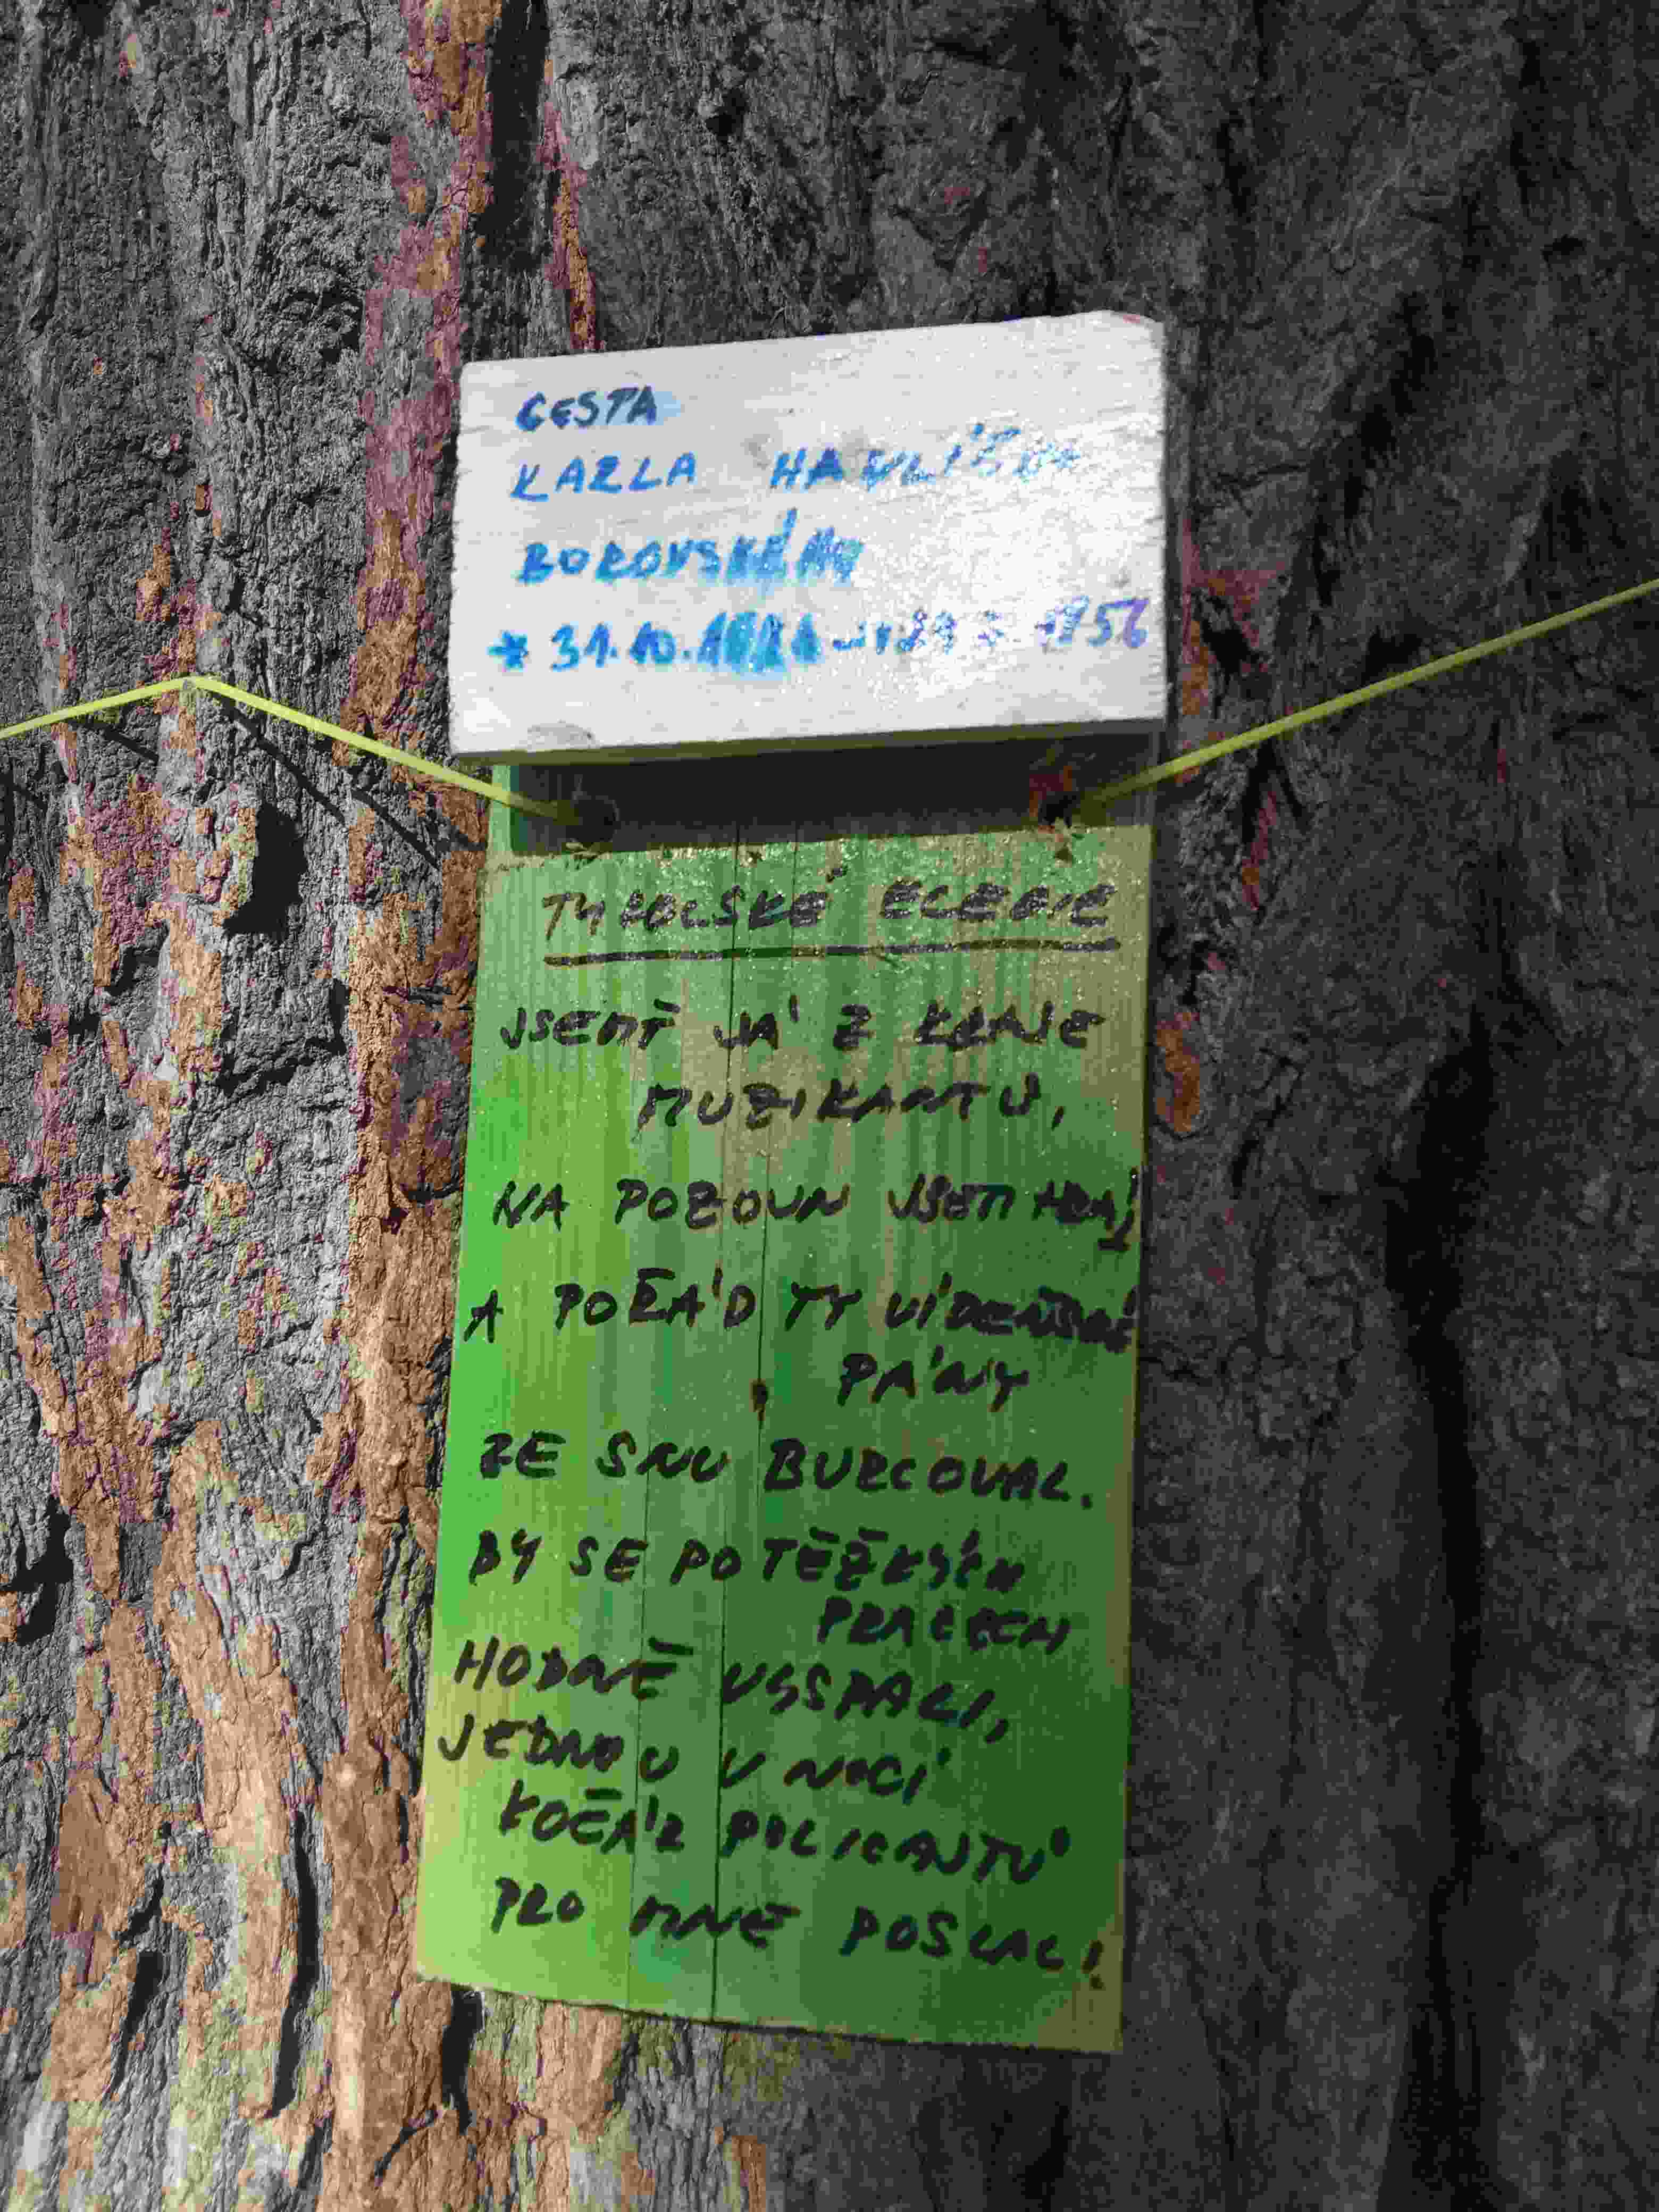 CESTA
KARLA HAVLÍČKA
BOROVSKÉHO
* 31.10.1821 - 1856
TYROLSKÉ ELEGIE
JSEMŤ JÁ Z KRAJE
MUZIKANTŮ,
NA POZOUN JSEM HRÁL
A POŘÁD TY VÍDEŇSKÉ
PÁNY
ZE SNU BURCOVAL.
BY SE PO TĚŽKÝCH
PRACECH
HODNĚ VYSPALI,
JEDNOU V NOCI
KOČÁR POLICAJTŮ
PRO MNE POSLAL!